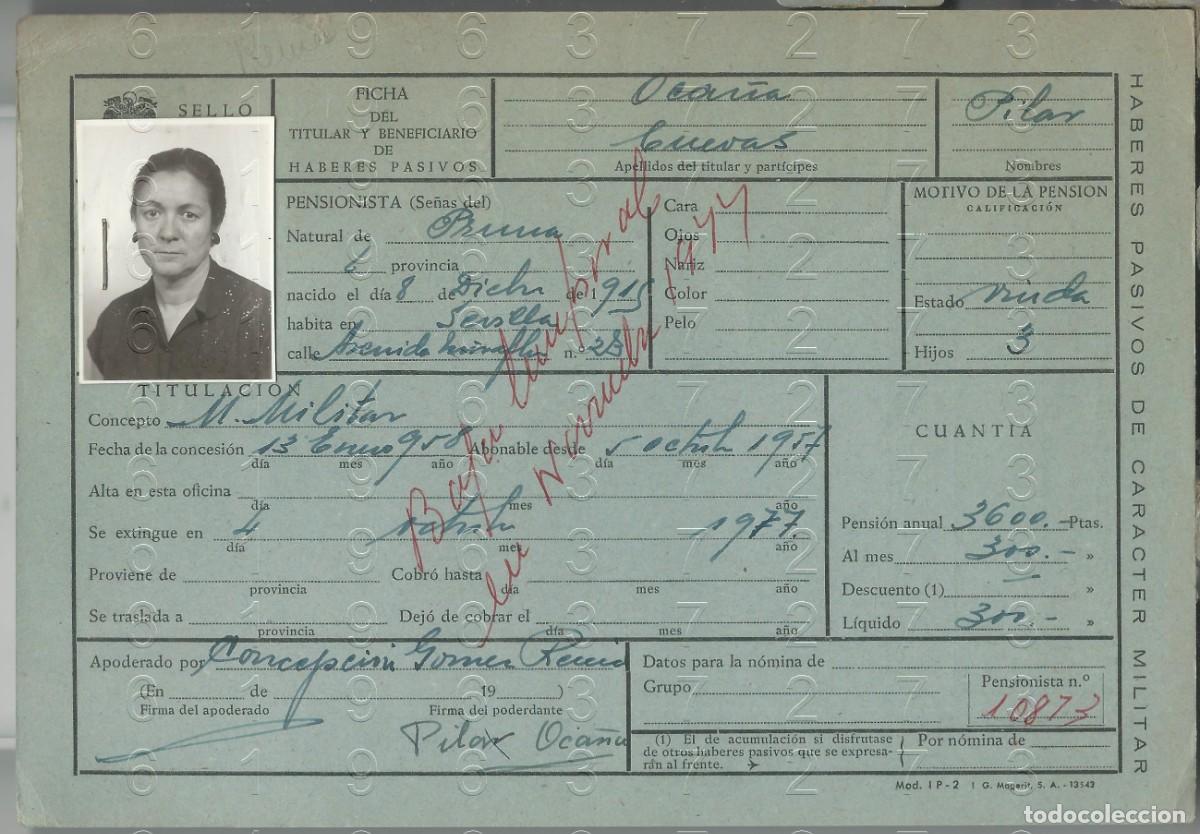 SELLO
FICHA
DEL
TITULAR Y BENEFICIARIO
DE
HABERES PASIVOS
Ocaña
Cuevas
Apellidos del titular y partícipes
Pilar
Nombres
PENSIONISTA (Señas del)
Natural de Pruna
provincia
nacido el día 8 de Dicbre de 1915
habita en Sevilla
calle Avenida n.º 28
Cara
Ojos
Nariz
Color
Pelo
MOTIVO DE LA PENSION
CALIFICACIÓN
Estado viuda
Hijos 3
Baja temporal
en Noviembre 1977
TITULACION
Concepto M. Militar
Fecha de la concesión 13 Enero 958 Abonable desde 5 octubre 1957
día mes año día mes año
Alta en esta oficina
día mes año
Se extingue en 4 octubre 1977.
día mes año
Proviene de Cobró hasta
provincia día mes año
Se traslada a Dejó de cobrar el
provincia día mes año
CUANTIA
Pensión anual 3600.- Ptas.
Al mes 300.- »
Descuento (1) — »
Líquido 300.- »
Apoderado por Concepción Gomez Reina
(En de 19 )
Firma del apoderado Firma del poderdante
Pilar Ocaña
Datos para la nómina de
Grupo
Pensionista n.º
10873
(1) El de acumulación si disfrutase
de otros haberes pasivos que se expresa-
rán al frente.
Por nómina de
Mod. IP-2 I G. Magerit, S. A. - 13542
HABERES PASIVOS DE CARACTER MILITAR
6 1 9 6 3 7 2 7 3
todocoleccion